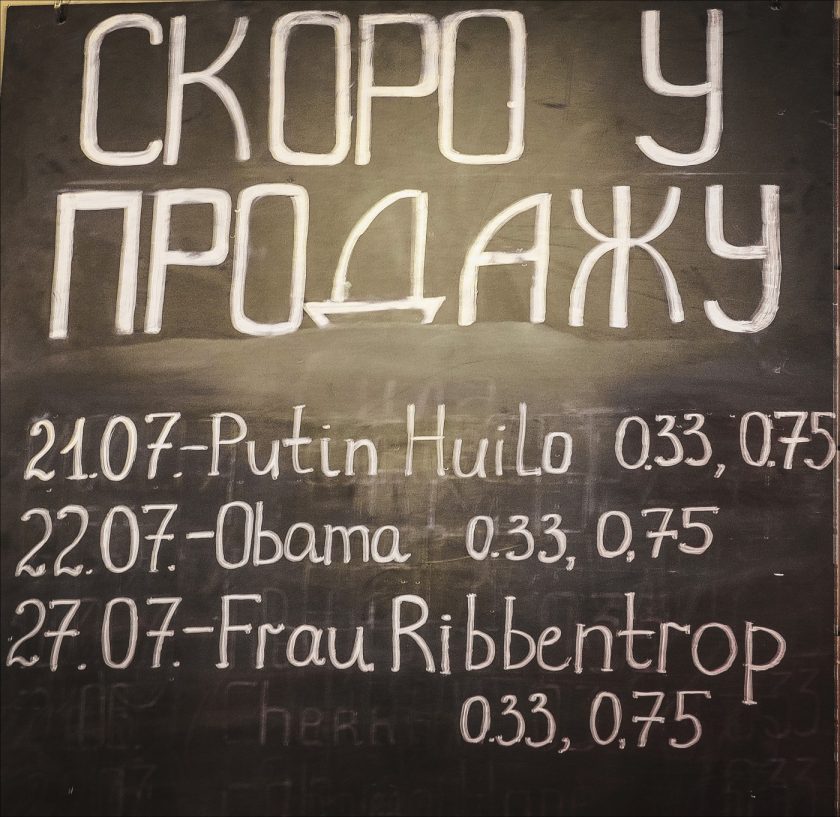 СКОРО У
ПРОДАЖУ
21.07.-Putin Huilo 0.33, 0.75
22.07.-Obama 0.33, 0,75
27.07.-Frau Ribbentrop
0.33, 0,75